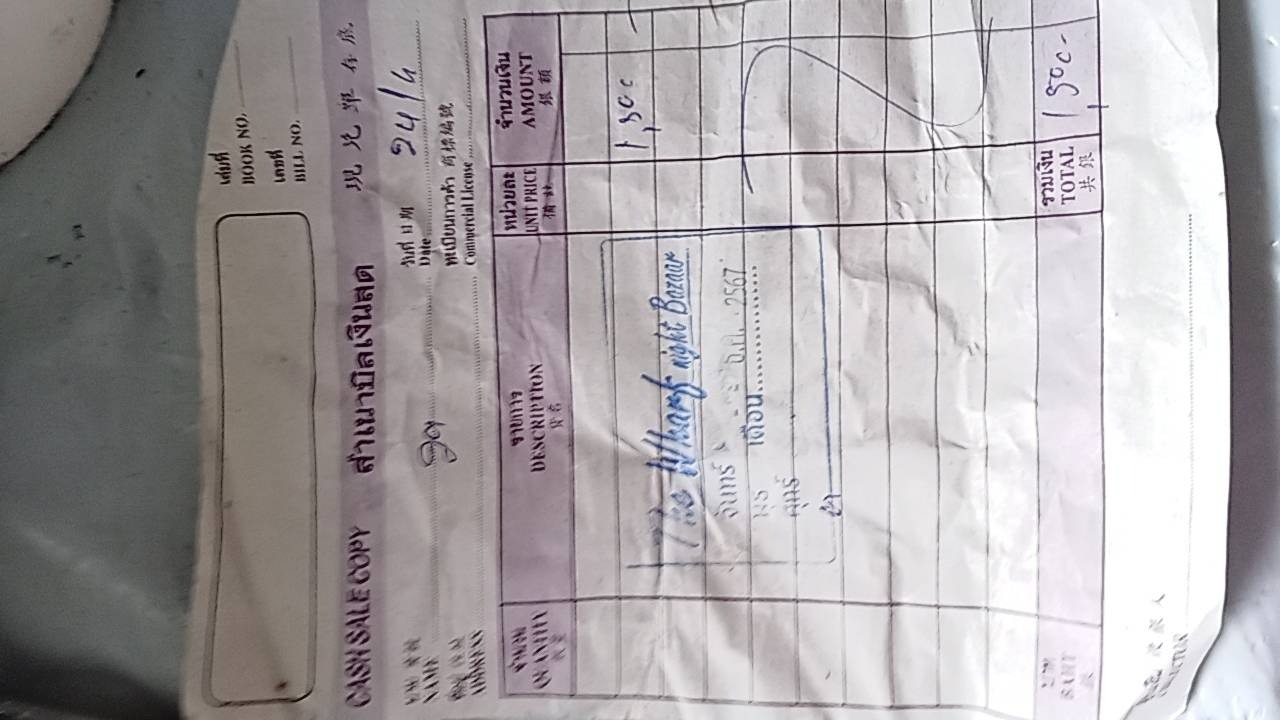 เล่มที่
BOOK NO.
เลขที่
BILL NO.
CASH SALE COPY สำเนาบิลเงินสด 現兌單存底
วันที่ 日期
Date 24/4
นาม
NAME
ทะเบียนการค้า 商標編號
ADDRESS Commercial License
จำนวน รายการ หน่วยละ จำนวนเงิน
QUANTITY DESCRIPTION UNIT PRICE AMOUNT
銀額
1,500
The Wharf night Bazaar
จันทร์ ธ.ค. 2567
พุธ เดือน
ศุกร์
บาท รวมเงิน
BAHT TOTAL 1,500.-
共銀
COLLECTOR